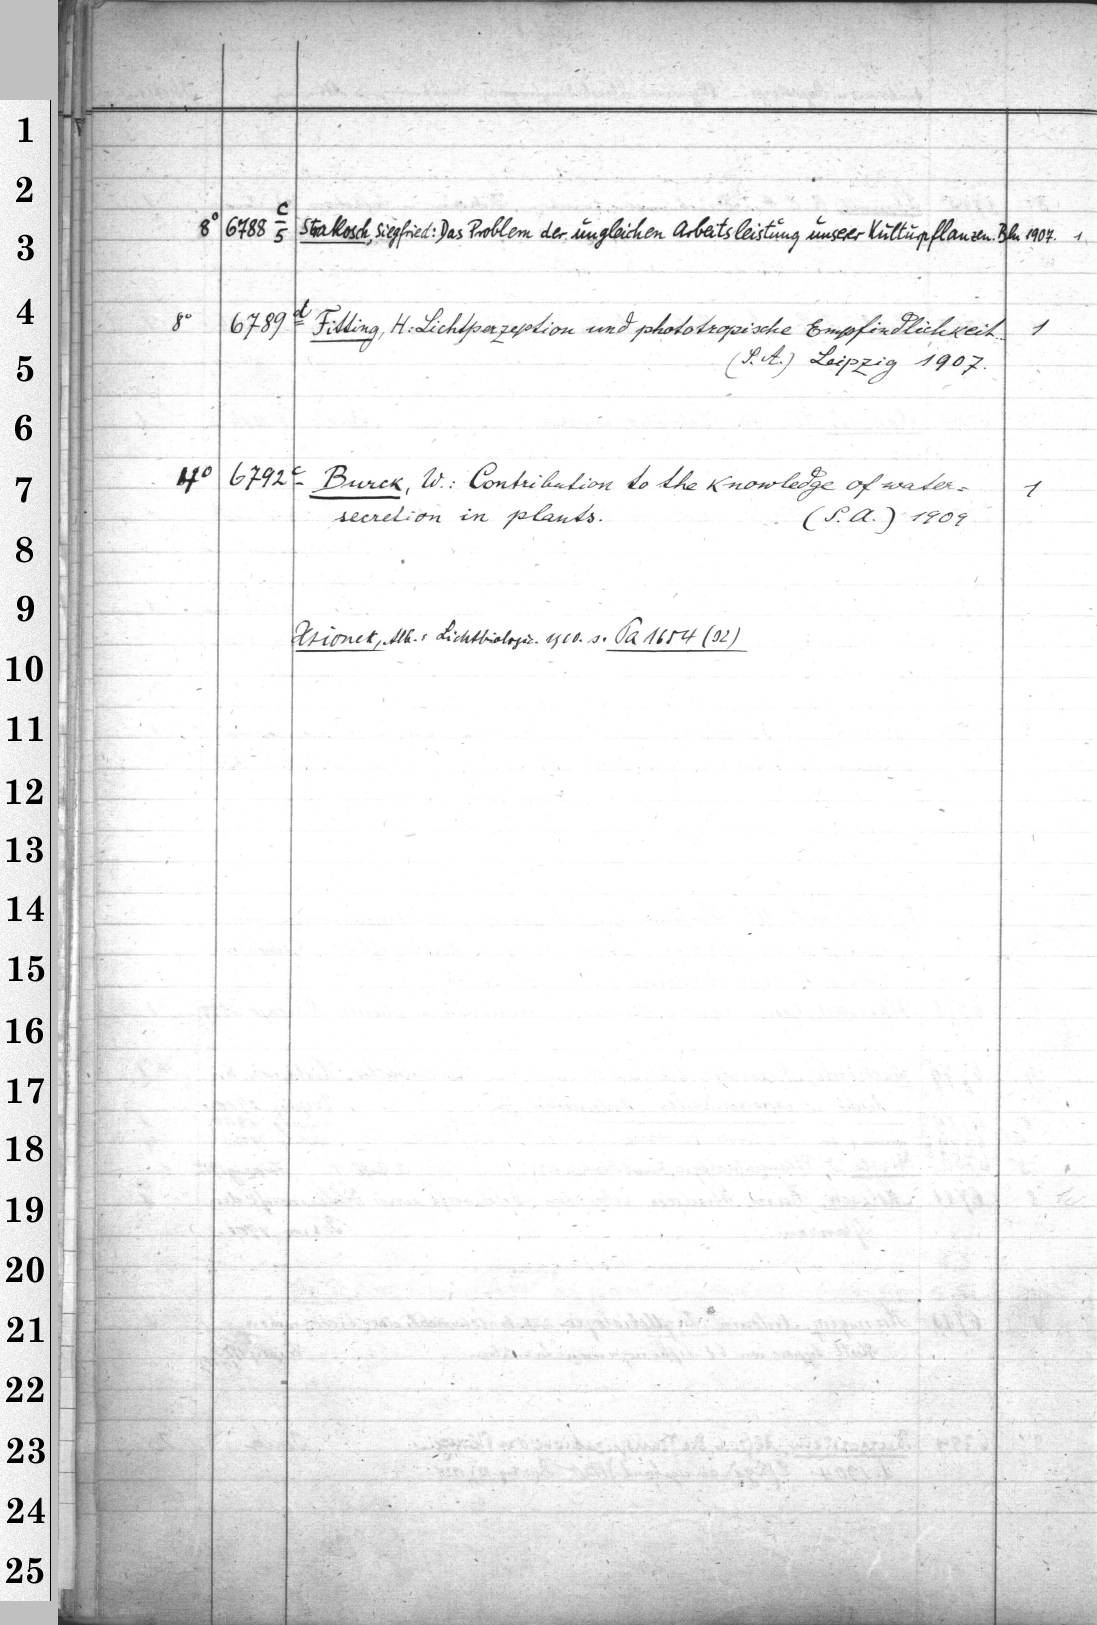 1
2
3
4
5
6
7
8
9
10
11
12
13
14
15
16
17
18
19
20
21
22
23
24
25
8° 6788 c/5 Strakosch, Siegfried: Das Problem der ungleichen Arbeitsleistung unserer Kulturpflanzen. Bln 1907. 1
8° 6789 d Fitting, H: Lichtperzeption und phototropische Empfindlichkeit. 1
(S. A.) Leipzig 1907.
4° 6792 c Burck, W.: Contribution to the knowledge of water= 1
secretion in plants. (S. A.) 1909
Alb.: Lichtbiologie. 1910. s. Pa 1654 (92)